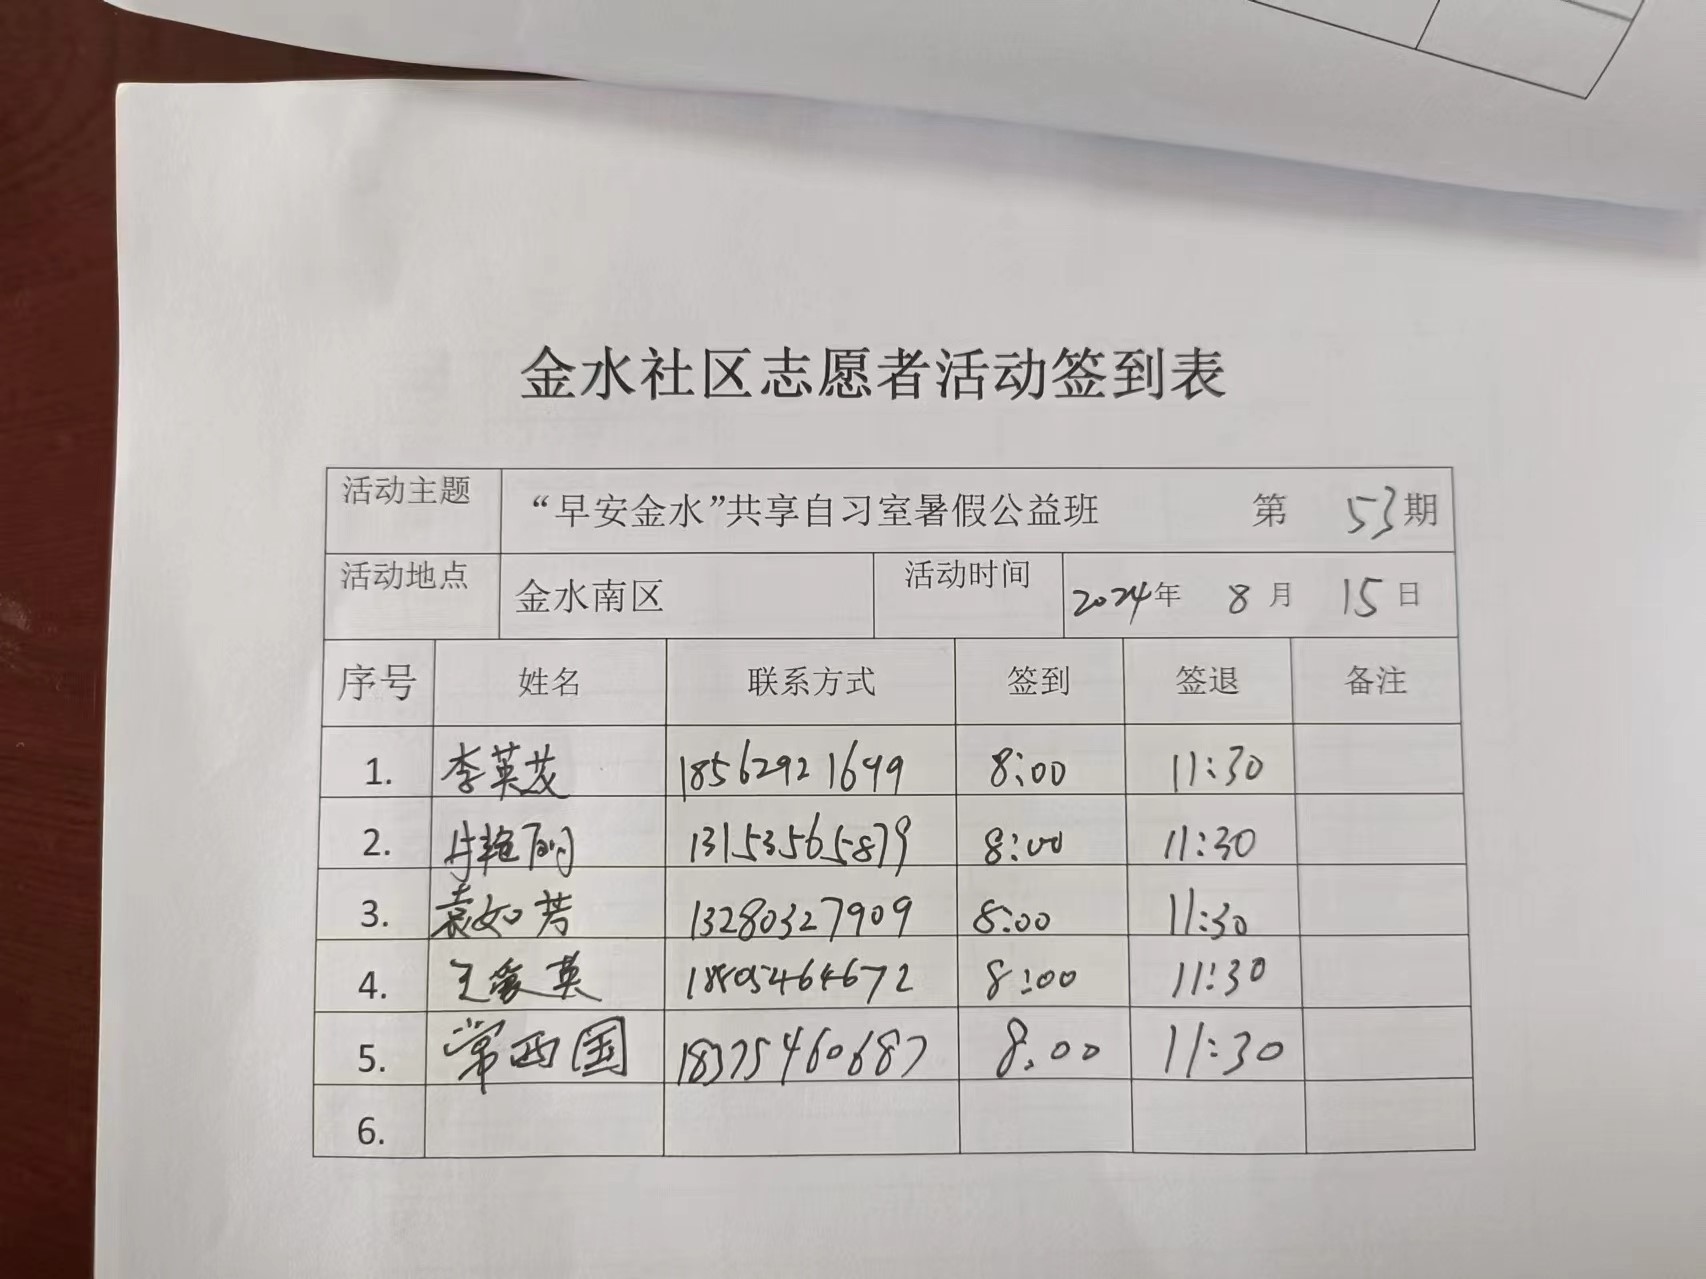 金水社区志愿者活动签到表
活动主题 “早安金水”共享自习室暑假公益班 第 53 期
活动地点 金水南区 活动时间 2024年 8 月 15 日
序号 姓名 联系方式 签到 签退 备注
1. 李英茂 18562921699 8:00 11:30
2. 艳丽 13153565879 8:00 11:30
3. 袁如芳 13280327909 8:00 11:30
4. 王爱英 18805464672 8:00 11:30
5. 常西国 18375460687 8:00 11:30
6.